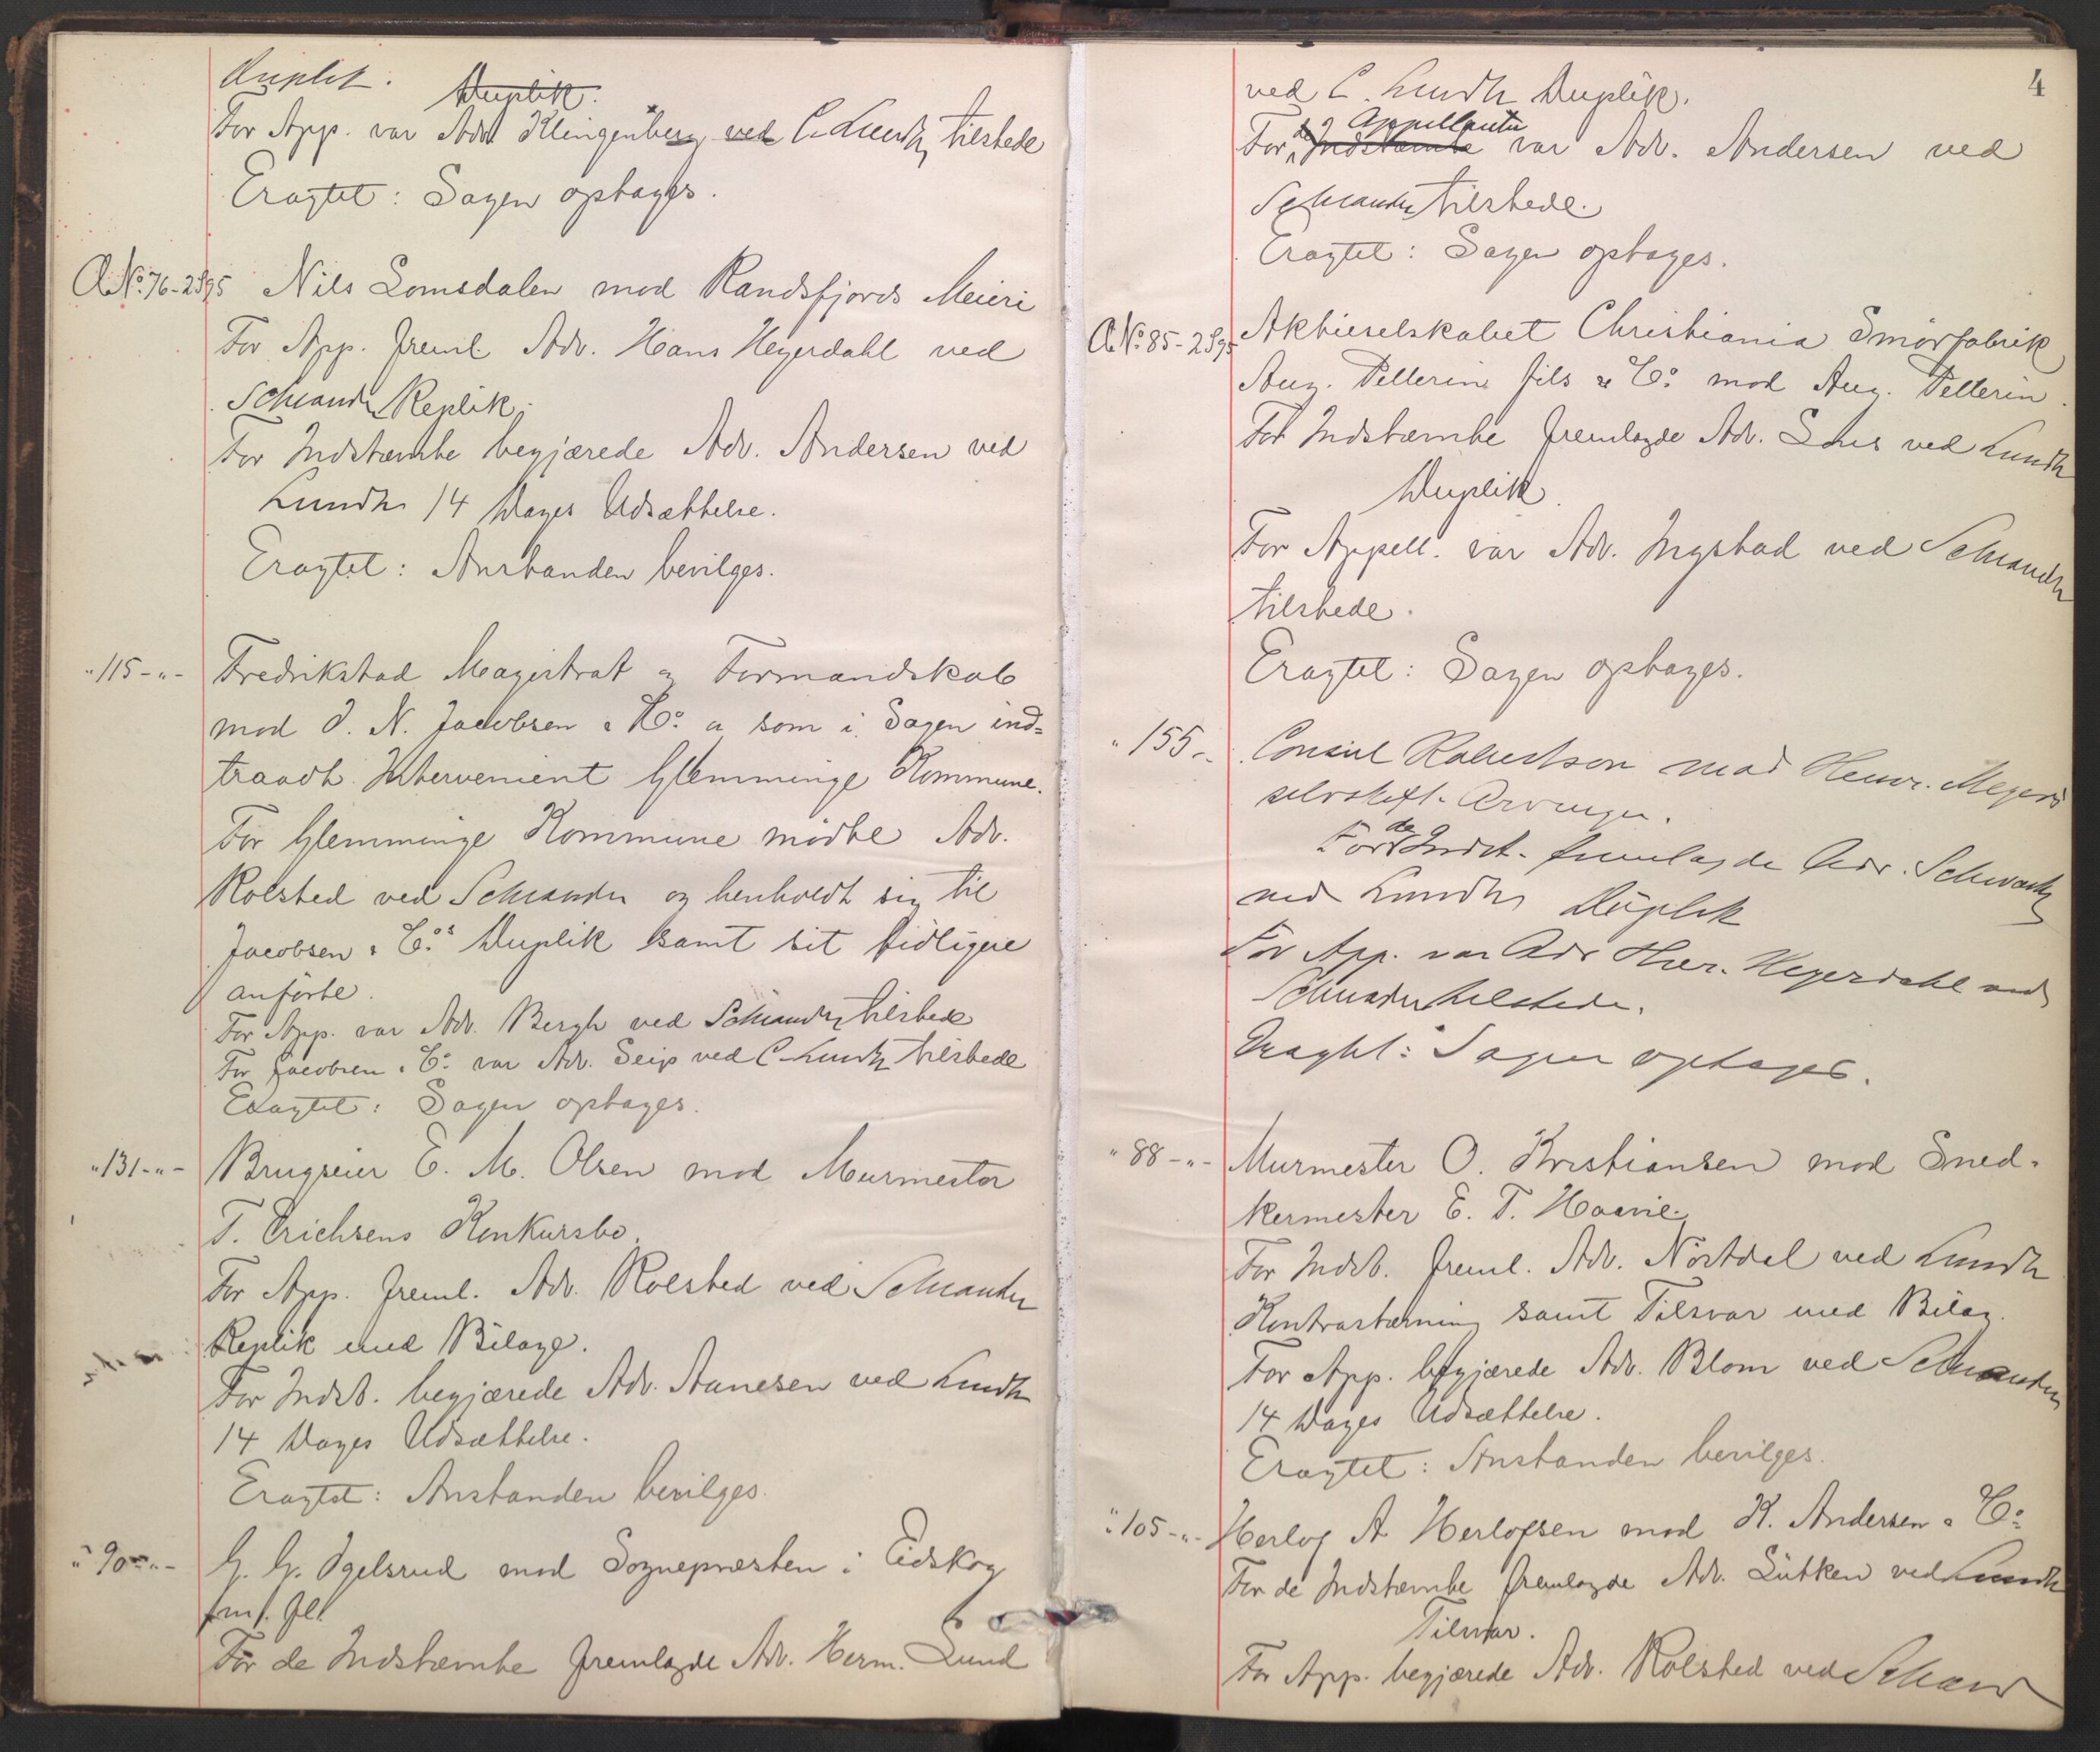 Duplik.
Duplik.
For App. var Adv. Klingenberg ved C. Lundh tilstede
Eragtet: Sagen optages.
A. No. 76-2 S/95 Nils Lomsdalen mod Randsfjords Meieri
For App. freml. Adv. Hans Heyerdahl ved
Schiander Replik.
For Indstævnte begjærede Adv. Andersen ved
Lundh 14 Dages Udsættelse.
Eragtet: Anstanden bevilges.
" 115 - " - Fredrikstad Magistrat og Formandskab
mod J. N. Jacobsen & Co. og som i Sagen ind=
traadt Intervenient Glemminge Kommune.
For Glemminge Kommune mødte Adv.
Rolsted ved Schiander og henholdt sig til
Jacobsen & Co.s Duplik samt sit tidligere
anførte.
For App. var Adv. Bergh ved Schiander tilstede
For Jacobsen & Co. var Adv. Seip ved C. Lundh tilstede
Eragtet: Sagen optages.
" 131 - " - Brugseier E. M. Olsen mod Murmester
T. Erichsens Konkursbo.
For App. freml. Adv. Rolsted ved Schiander
Replik med Bilage.
For Indst. begjærede Adv. Aanesen ved Lundh
14 Dages Udsættelse.
Eragtet: Anstanden bevilges.
" 90 - " - G. G. Ogelsrud mod Sognepræsten i Eidskog
m. fl.
For de Indstævnte fremlagde Adv. Herm. Lund
4
ved C. Lundh Duplik.
de Appellanter
For Indstævnte var Adv. Andersen ved
Schiander tilstede.
Eragtet: Sagen optages.
A. No. 85-2 S/95 Aktieselskabet Christiania Smørfabrik
Aug. Pellerin fils & Co. mod Aug. Pellerin.
For Indstævnte fremlagde Adv. ved Lundh
Duplik.
For Appell. var Adv. Ingstad ved Schiander
tilstede.
Eragtet: Sagen optages.
" 155 - Consul Robertson mod Henr. Meyers
selvskift. Arvinger.
de
For Indst. fremlagde Adv. Schwartz
ved Lundh Duplik
For App. var Adv. Heyerdahl ved
Schiander tilstede.
Eragtet: Sagen optages.
" 88 - " - Murmester O. Kristiansen mod Sned-
kermester E. T. Haavie.
For Indst. freml. Adv. Nørtdal ved Lundh
Kontrastævning samt Tilsvar med Bilag.
For App. begjærede Adv. Blom ved Schiander
14 Dages Udsættelse.
Eragtet: Anstanden bevilges.
" 105 - " - Herlof A Herlofsen mod K. Andersen & Co.
For de Indstævnte fremlagde Adv. Lütken ved Lundh
Tilsvar.
For App. begjærede Adv. Rolsted ved Schiand